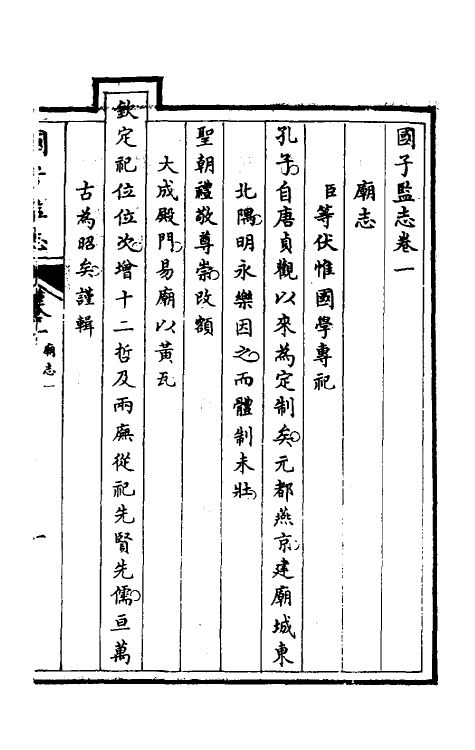 國子監志卷一
廟志
臣等伏惟國學專祀
孔子自唐貞觀以來為定制矣元都燕京建廟城東
北隅明永樂因之而體制未壯
聖朝禮敬尊崇改額
大成殿門易廟以黃瓦
欽定祀位位次增十二哲及兩廡從祀先賢先儒亘萬
古為昭矣謹輯
國子監志
卷一
廟志一
一